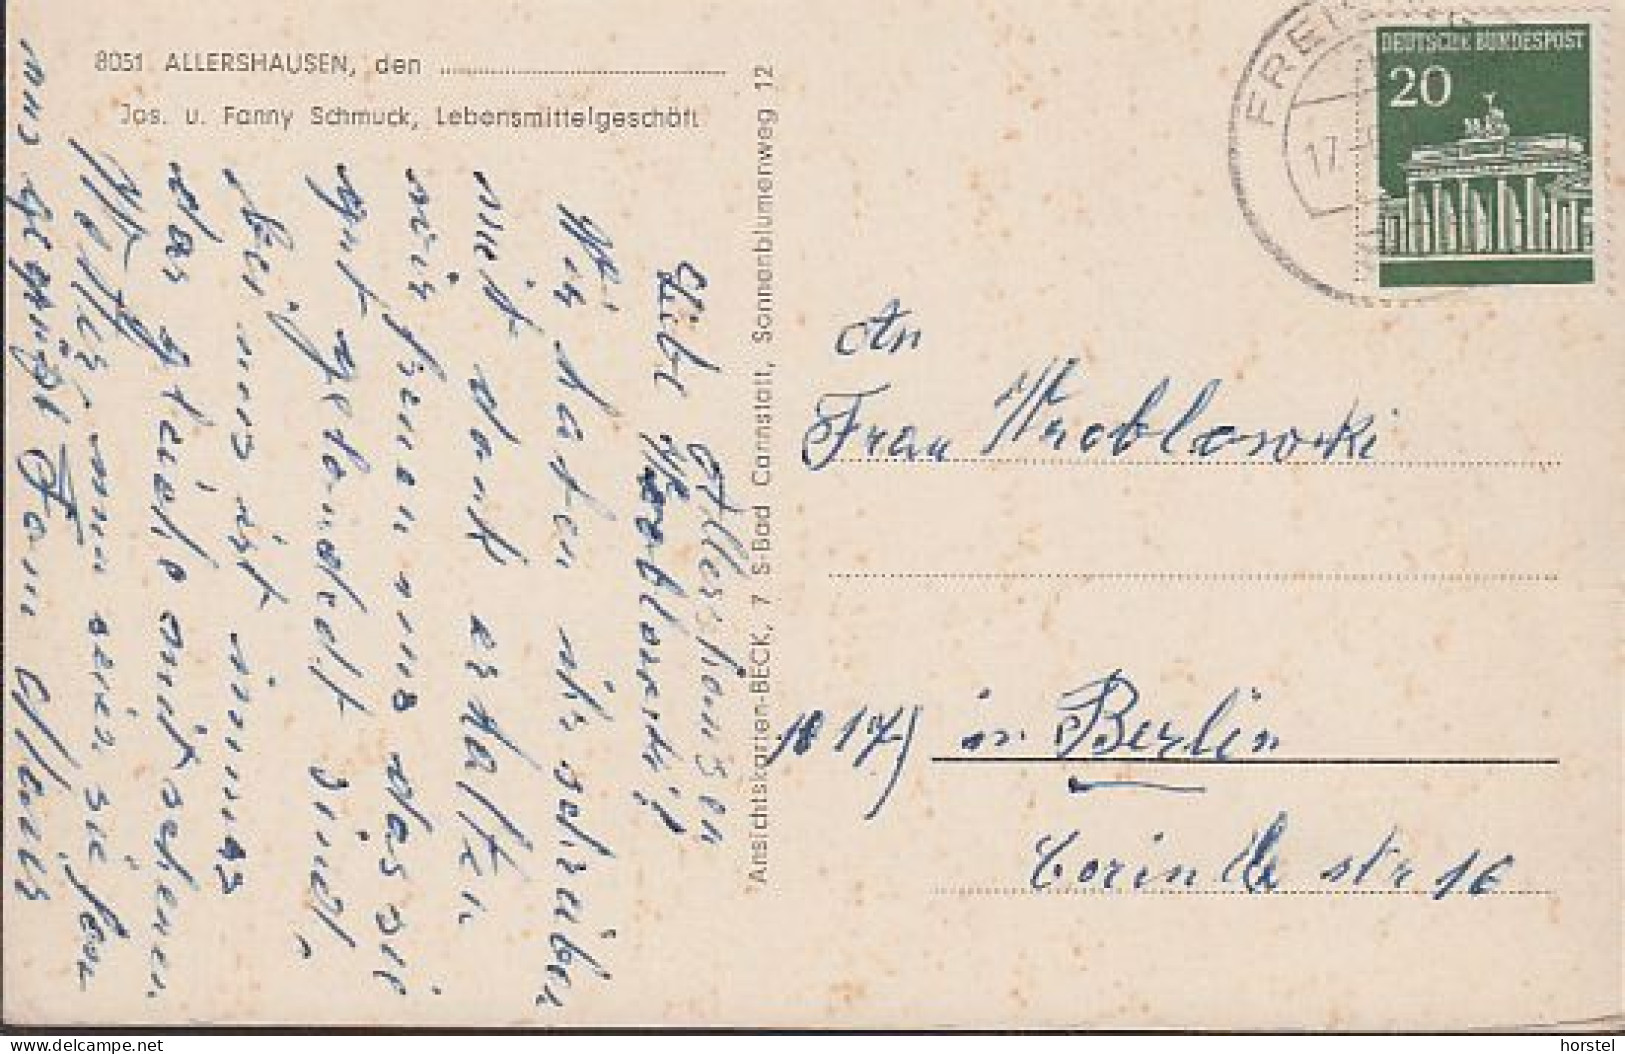 8051 ALLERSHAUSEN, den
Jos. u. Fanny Schmuck, Lebensmittelgeschäft
Ansichtskarten-BECK, 7 S-Bad Cannstatt, Sonnenblumenweg 12
FREISING
17.
DEUTSCHE BUNDESPOST
20
Allershausen
Liebe Frau
Wroblowski!
Wir haben ihr schreiben
mit dank erhalten
wir freuen uns das sie
gut gelandet sind.
bei uns ist immer
das gleiche
Wetter nun seien sie
uns gegrüßt Fam
An
Frau Wroblowski
1000 17) in Berlin
Corinthstr 16
www.delcampe.net
horstel